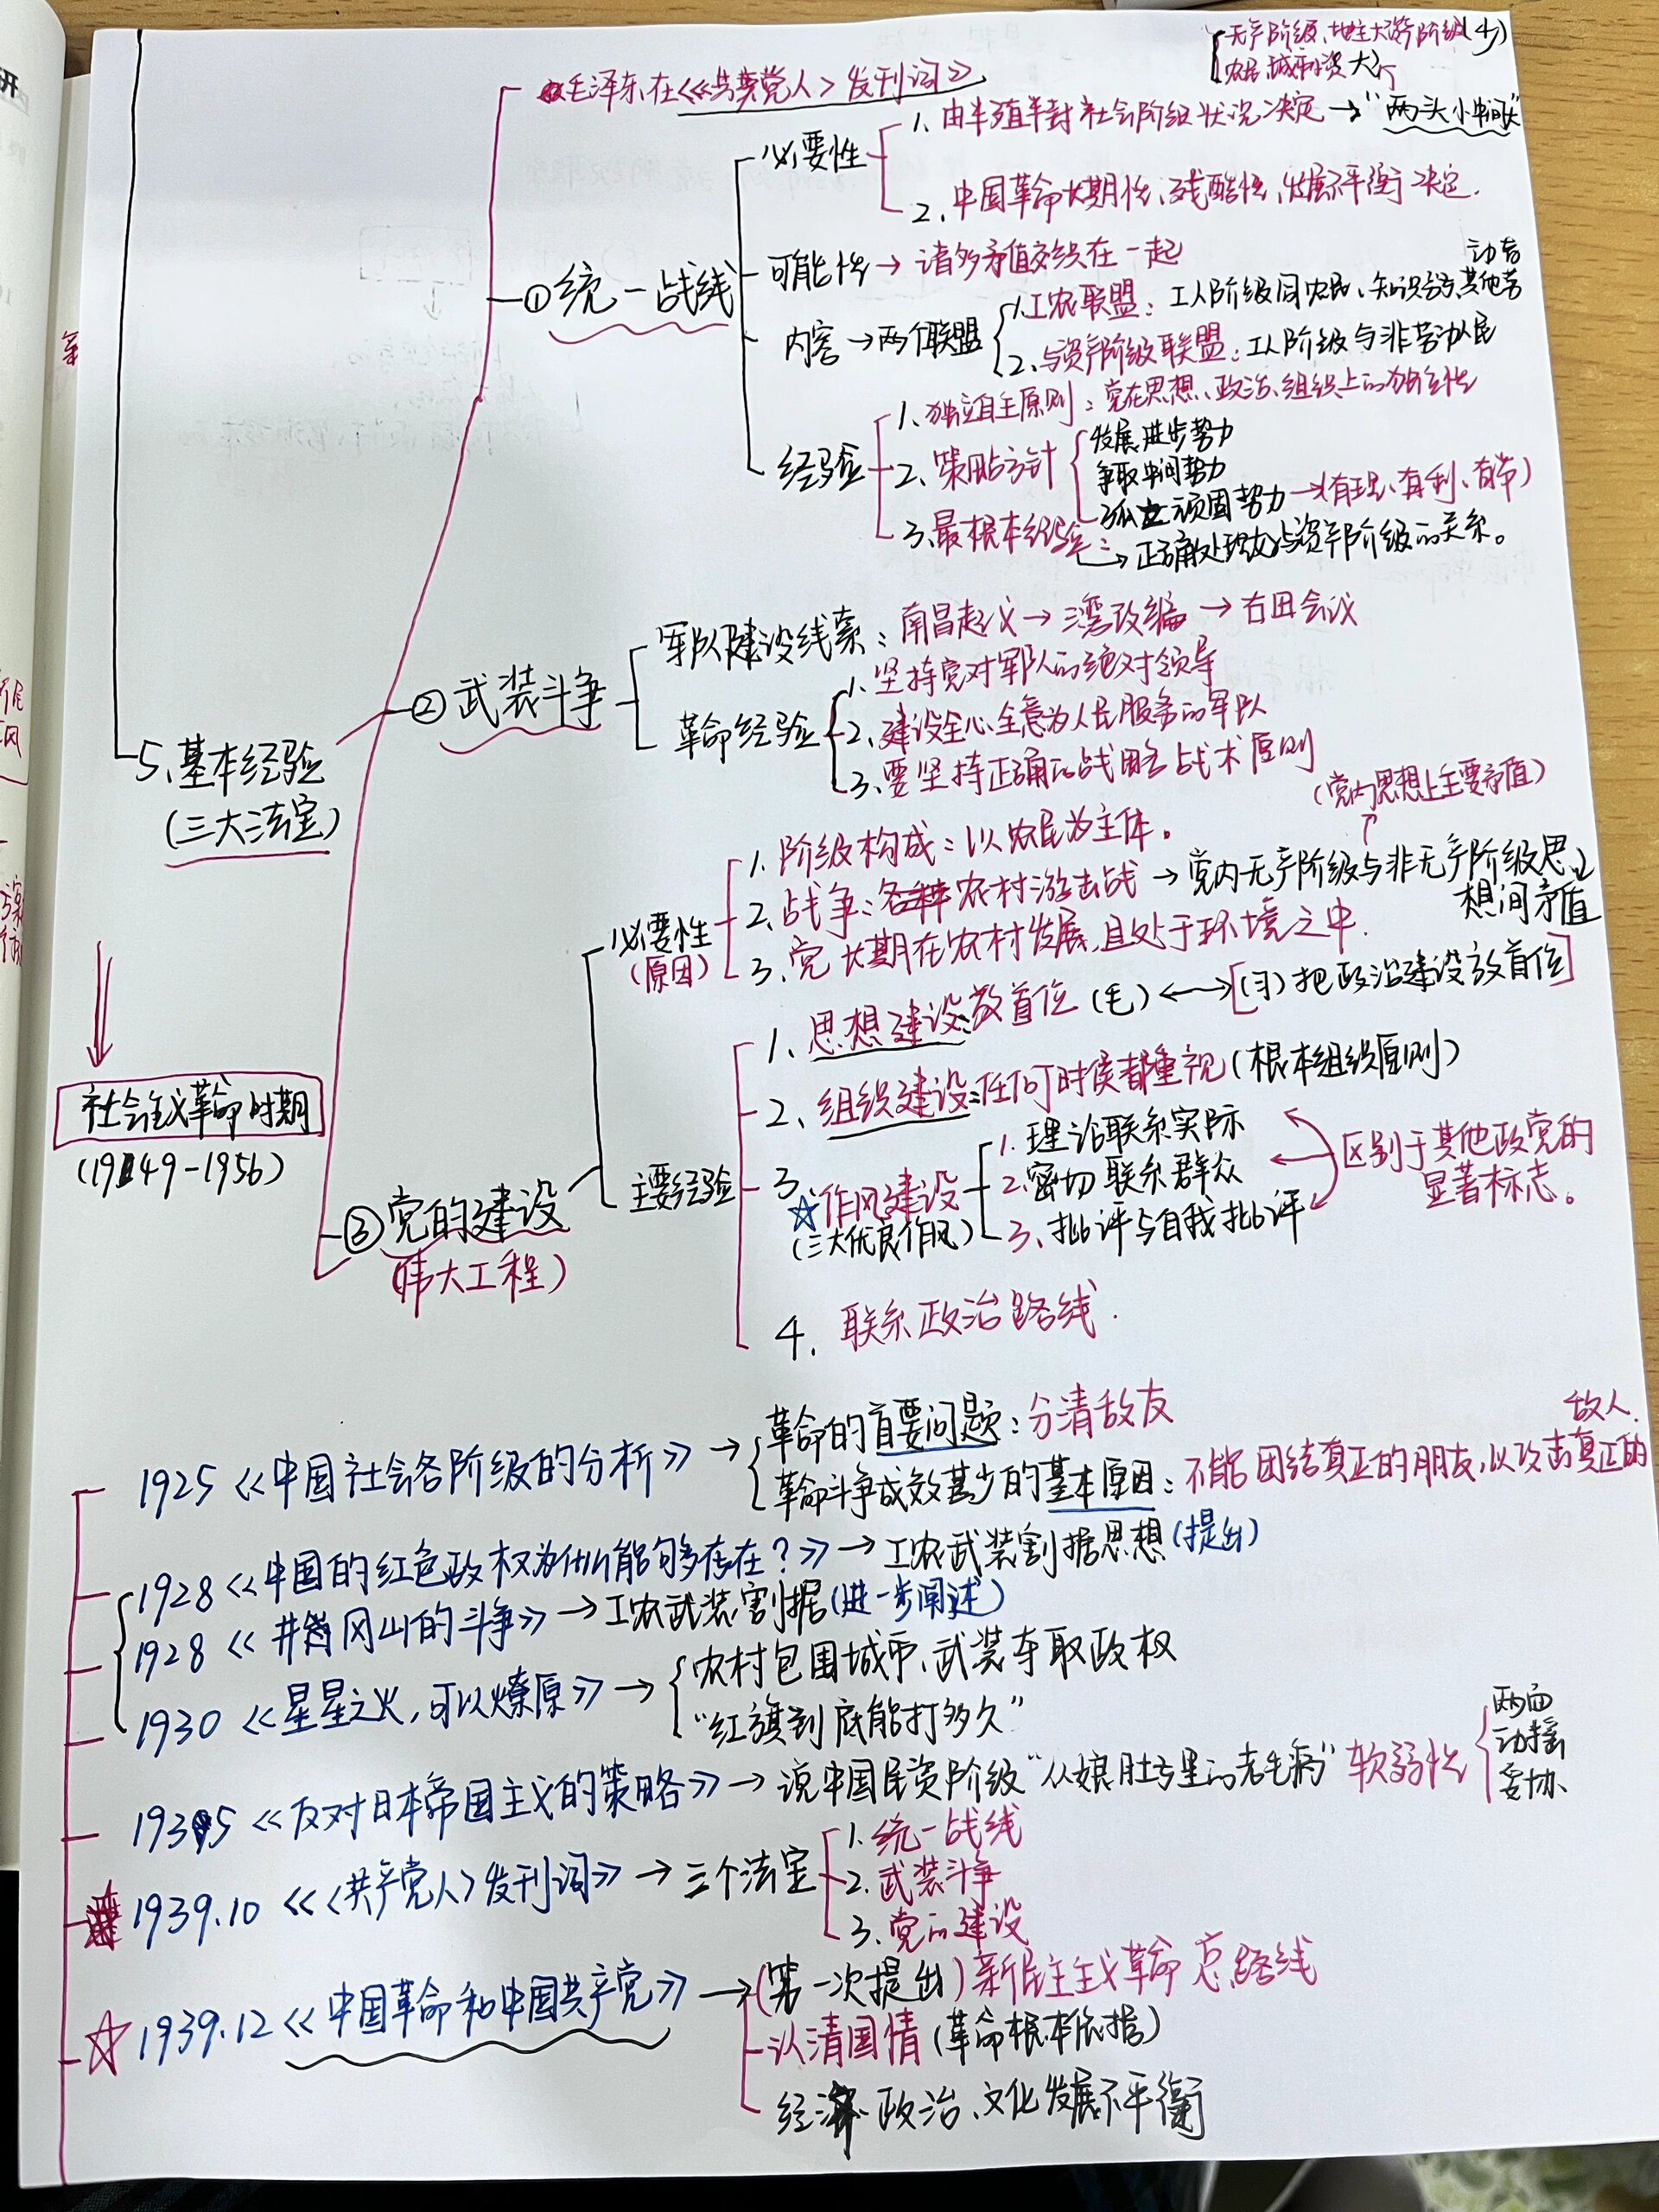 研
毛泽东在《<共产党人>发刊词》
无产阶级、地主大资产阶级(少)
农民 城市小资 大
①统一战线
必要性
1. 由半殖半封社会阶级状况决定→"两头小中间大"
2、中国革命长期性、残酷性、发展不平衡决定.
可能性→诸多矛盾交织在一起
内容→两个联盟
1.工农联盟：工人阶级同农民、知识分子、其他劳动者
2、与资产阶级联盟：工人阶级与非劳动人民
经验
1、独立自主原则：党在思想、政治、组织上的独立性
2、策略方针
发展进步势力
争取中间势力
孤立顽固势力→(有理、有利、有节)
3、最根本经验：→正确处理好与资产阶级的关系。
5、基本经验
(三大法宝)
②武装斗争
军队建设线索：南昌起义→三湾改编→古田会议
革命经验
1、坚持党对军队的绝对领导
2、建设全心全意为人民服务的军队
3、要坚持正确的战略战术原则
③党的建设
(伟大工程)
必要性
(原因)
1. 阶级构成：以农民为主体。
2、战争：农村游击战→党内无产阶级与非无产阶级思想间矛盾
(党内思想上主要矛盾)
3、党长期在农村发展,且处于环境之中.
主要经验
1、思想建设:放首位(毛)←→[(习)把政治建设放首位]
2、组织建设:任何时候都重视(根本组织原则)
3、☆作风建设
(三大优良作风)
1. 理论联系实际
2.密切联系群众
3、批评与自我批评
区别于其他政党的
显著标志。
4. 联系政治路线.
社会主义革命时期
(1949-1956)
1925《中国社会各阶级的分析》→
革命的首要问题：分清敌友
革命斗争成效甚少的基本原因：不能团结真正的朋友,以攻击真正的敌人.
1928《中国的红色政权为什么能够存在？》→工农武装割据思想(提出)
1928《井冈山的斗争》→工农武装割据(进一步阐述)
1930《星星之火,可以燎原》→
农村包围城市、武装夺取政权
"红旗到底能打多久"
1935《反对日本帝国主义的策略》→说中国民资阶级"从娘肚子里的老毛病"软弱性
两面
动摇
妥协
1939.10《<共产党人>发刊词》→三个法宝
1. 统一战线
2. 武装斗争
3. 党的建设
☆1939.12《中国革命和中国共产党》→
(第一次提出)新民主主义革命总路线
认清国情(革命根本依据)
经济、政治、文化发展不平衡